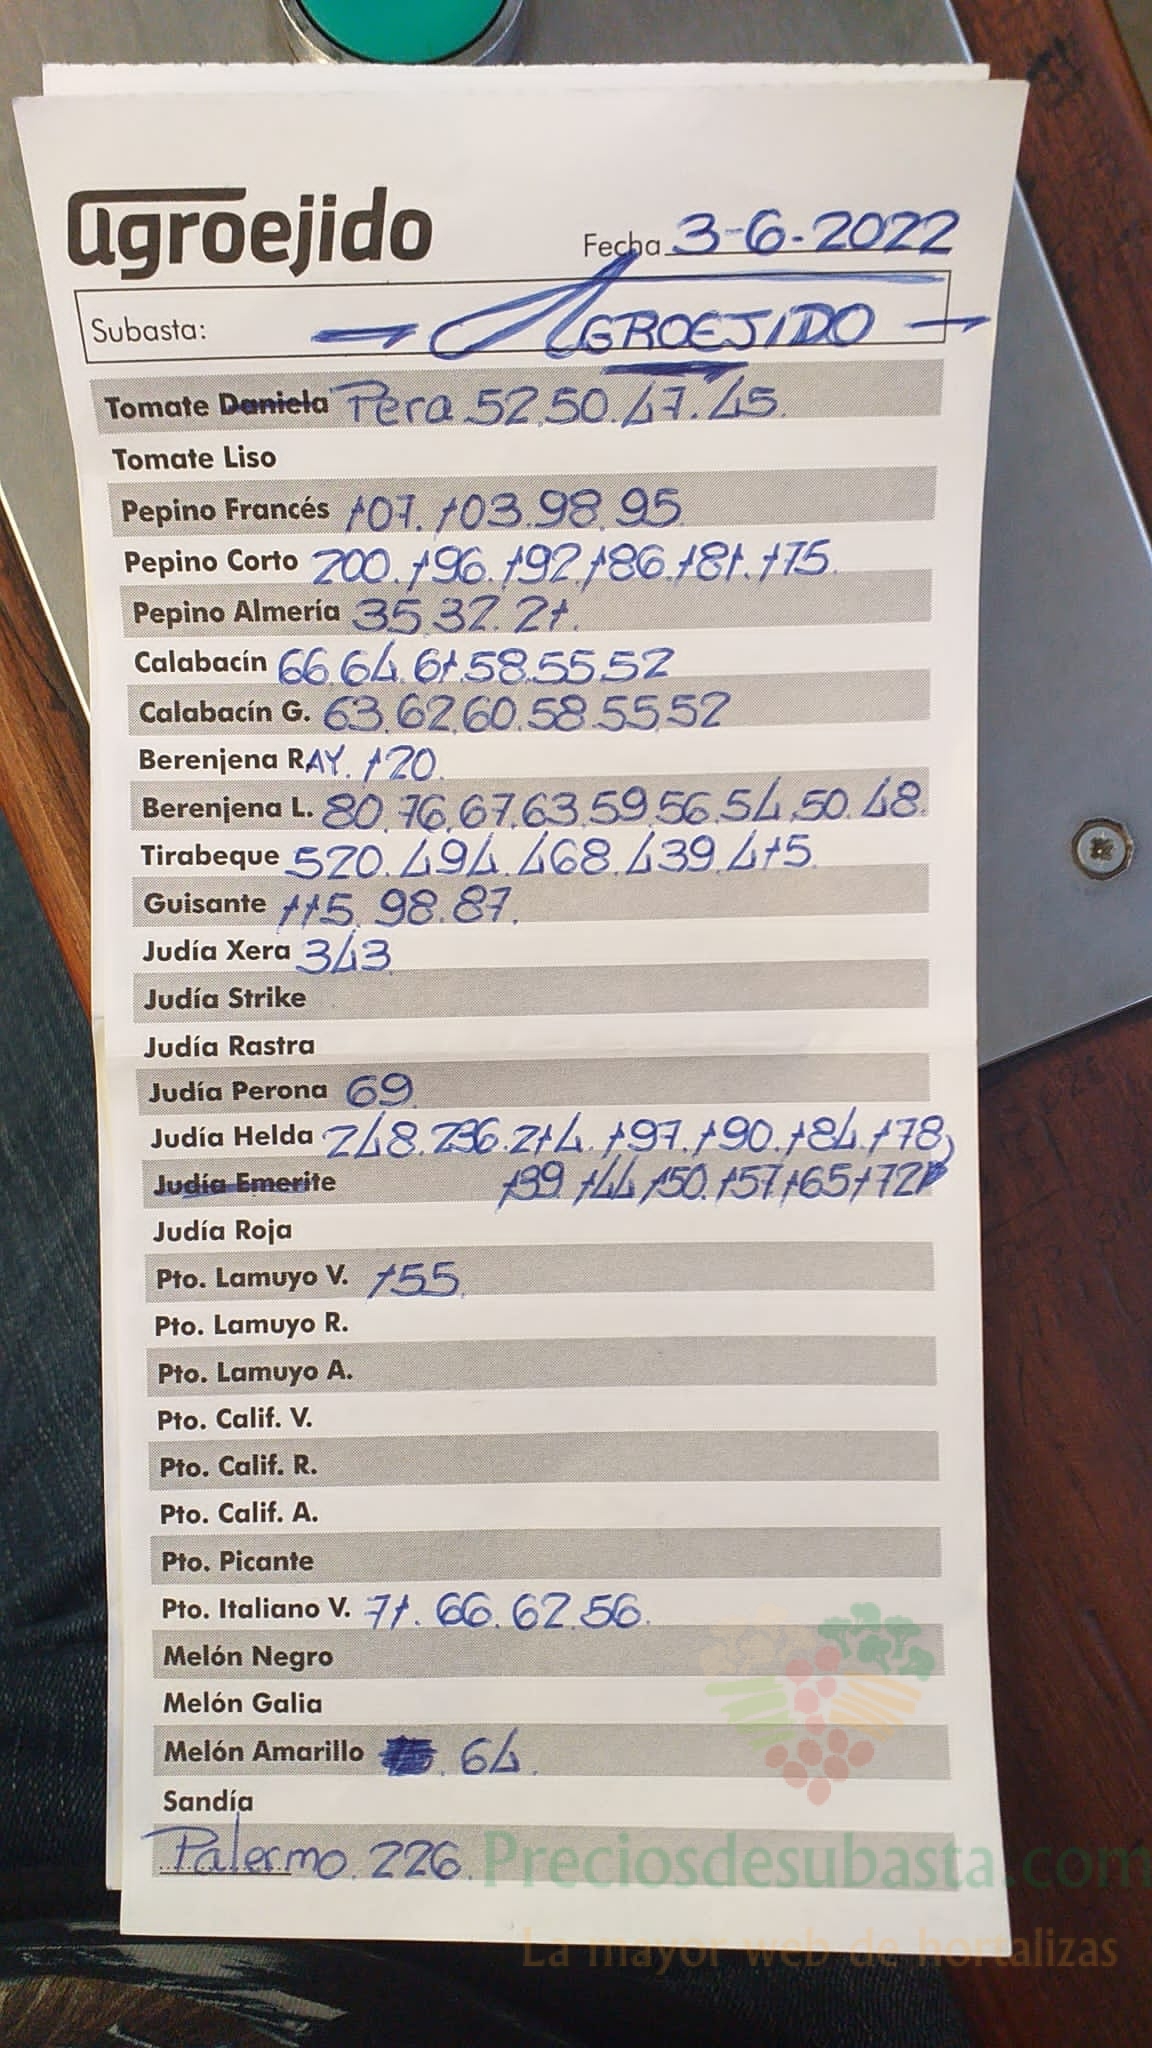 agroejido
Fecha 3-6-2022
Subasta: AGROEJIDO
Tomate Daniela Pera 52.50.47.45.
Tomate Liso
Pepino Francés 107.103.98.95
Pepino Corto 200.196.192.186.181.175.
Pepino Almería 35.32.21.
Calabacín 66.64.61.58.55.52
Calabacín G. 63.62.60.58.55.52
Berenjena RAY. 120.
Berenjena L. 80.76.67.63.59.56.54.50.48.
Tirabeque 520.494.468.439.415.
Guisante 115.98.87.
Judía Xera 343
Judía Strike
Judía Rastra
Judía Perona 69.
Judía Helda 248.236.214.197.190.184.178
Judía Emerite 139.144.150.157.165.172
Judía Roja
Pto. Lamuyo V. 155.
Pto. Lamuyo R.
Pto. Lamuyo A.
Pto. Calif. V.
Pto. Calif. R.
Pto. Calif. A.
Pto. Picante
Pto. Italiano V. 71.66.62.56.
Melón Negro
Melón Galia
Melón Amarillo 64.
Sandía
Palermo. 226.
Preciosdesubasta.com
La mayor web de hortalizas